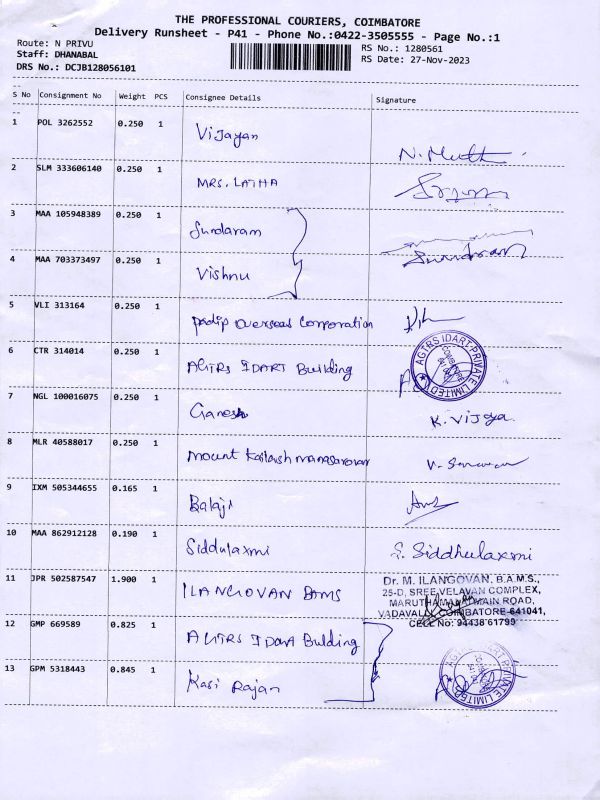 THE PROFESSIONAL COURIERS, COIMBATORE
Delivery Runsheet - P41 - Phone No.:0422-3505555 - Page No.:1
Route: N PRIVU
Staff: DHANABAL
DRS No.: DCJB128056101
RS No.: 1280561
RS Date: 27-Nov-2023
S No Consignment No Weight PCS Consignee Details Signature
1 POL 3262552 0.250 1 Vijayan
2 SLM 333606140 0.250 1 MRS. LATHA
3 MAA 105948389 0.250 1 Sundaram Sundram
4 MAA 703373497 0.250 1 Vishnu
5 VLI 313164 0.250 1 Pradip Overseas Corporation
6 CTR 314014 0.250 1 AGTRS IDART Building
AGTRS IDART PRIVATE LIMITED
7 NGL 100016075 0.250 1 Ganesh K. Vijaya
8 MLR 40588017 0.250 1 Mount Kailash Manasarovar
9 IXM 505344655 0.165 1 Balaji
10 MAA 862912128 0.190 1 Siddulaxmi S. Siddhulaxmi
11 JPR 502587547 1.900 1 ILANGOVAN BAMS
Dr. M. ILANGOVAN, B.A.M.S.,
25-D, SREE VELAVAN COMPLEX,
MARUTHAMALAI MAIN ROAD,
VADAVALLI, COIMBATORE-641041,
CELL No: 94438 61799
12 GMP 669589 0.825 1 AGTRS IDART Bulding
13 GPM 5318443 0.845 1 Kasi Rajan
AGTRS IDART PRIVATE LIMITED